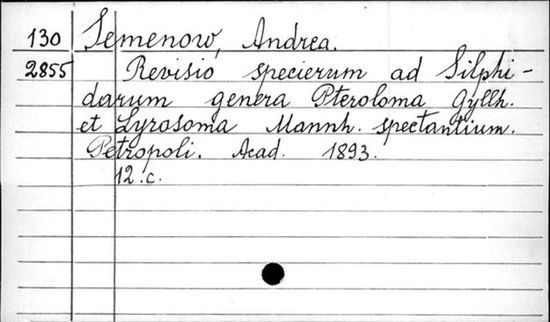 130 Semenow, Andrea.
2855 Revisio specierum ad Silphi-
darum genera Pteroloma Gyllh.
et Lyrosoma Mannh. spectantium.
Petropoli. Acad. 1893.
12.c.